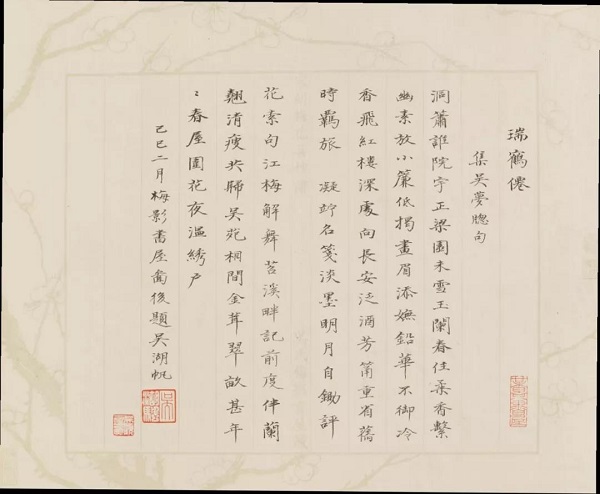 瑞鶴僊
集吳夢牕句
洞蕭誰院宇正梁園未雪玉闌春住柔香繫
幽素放小簾低揭畫眉添嫵鉛華不御冷
香飛紅樓深處向長安泛酒芳筩重省舊
時羈旅 凝竚名箋淡墨明月自鋤評
花索句江梅解舞苕溪畔記前度伴蘭
翹清瘦共歸吳苑桐間金茸翠畝甚年
〻春屋圍花夜溫繡戶
己巳二月梅影書屋畫後題吳湖帆